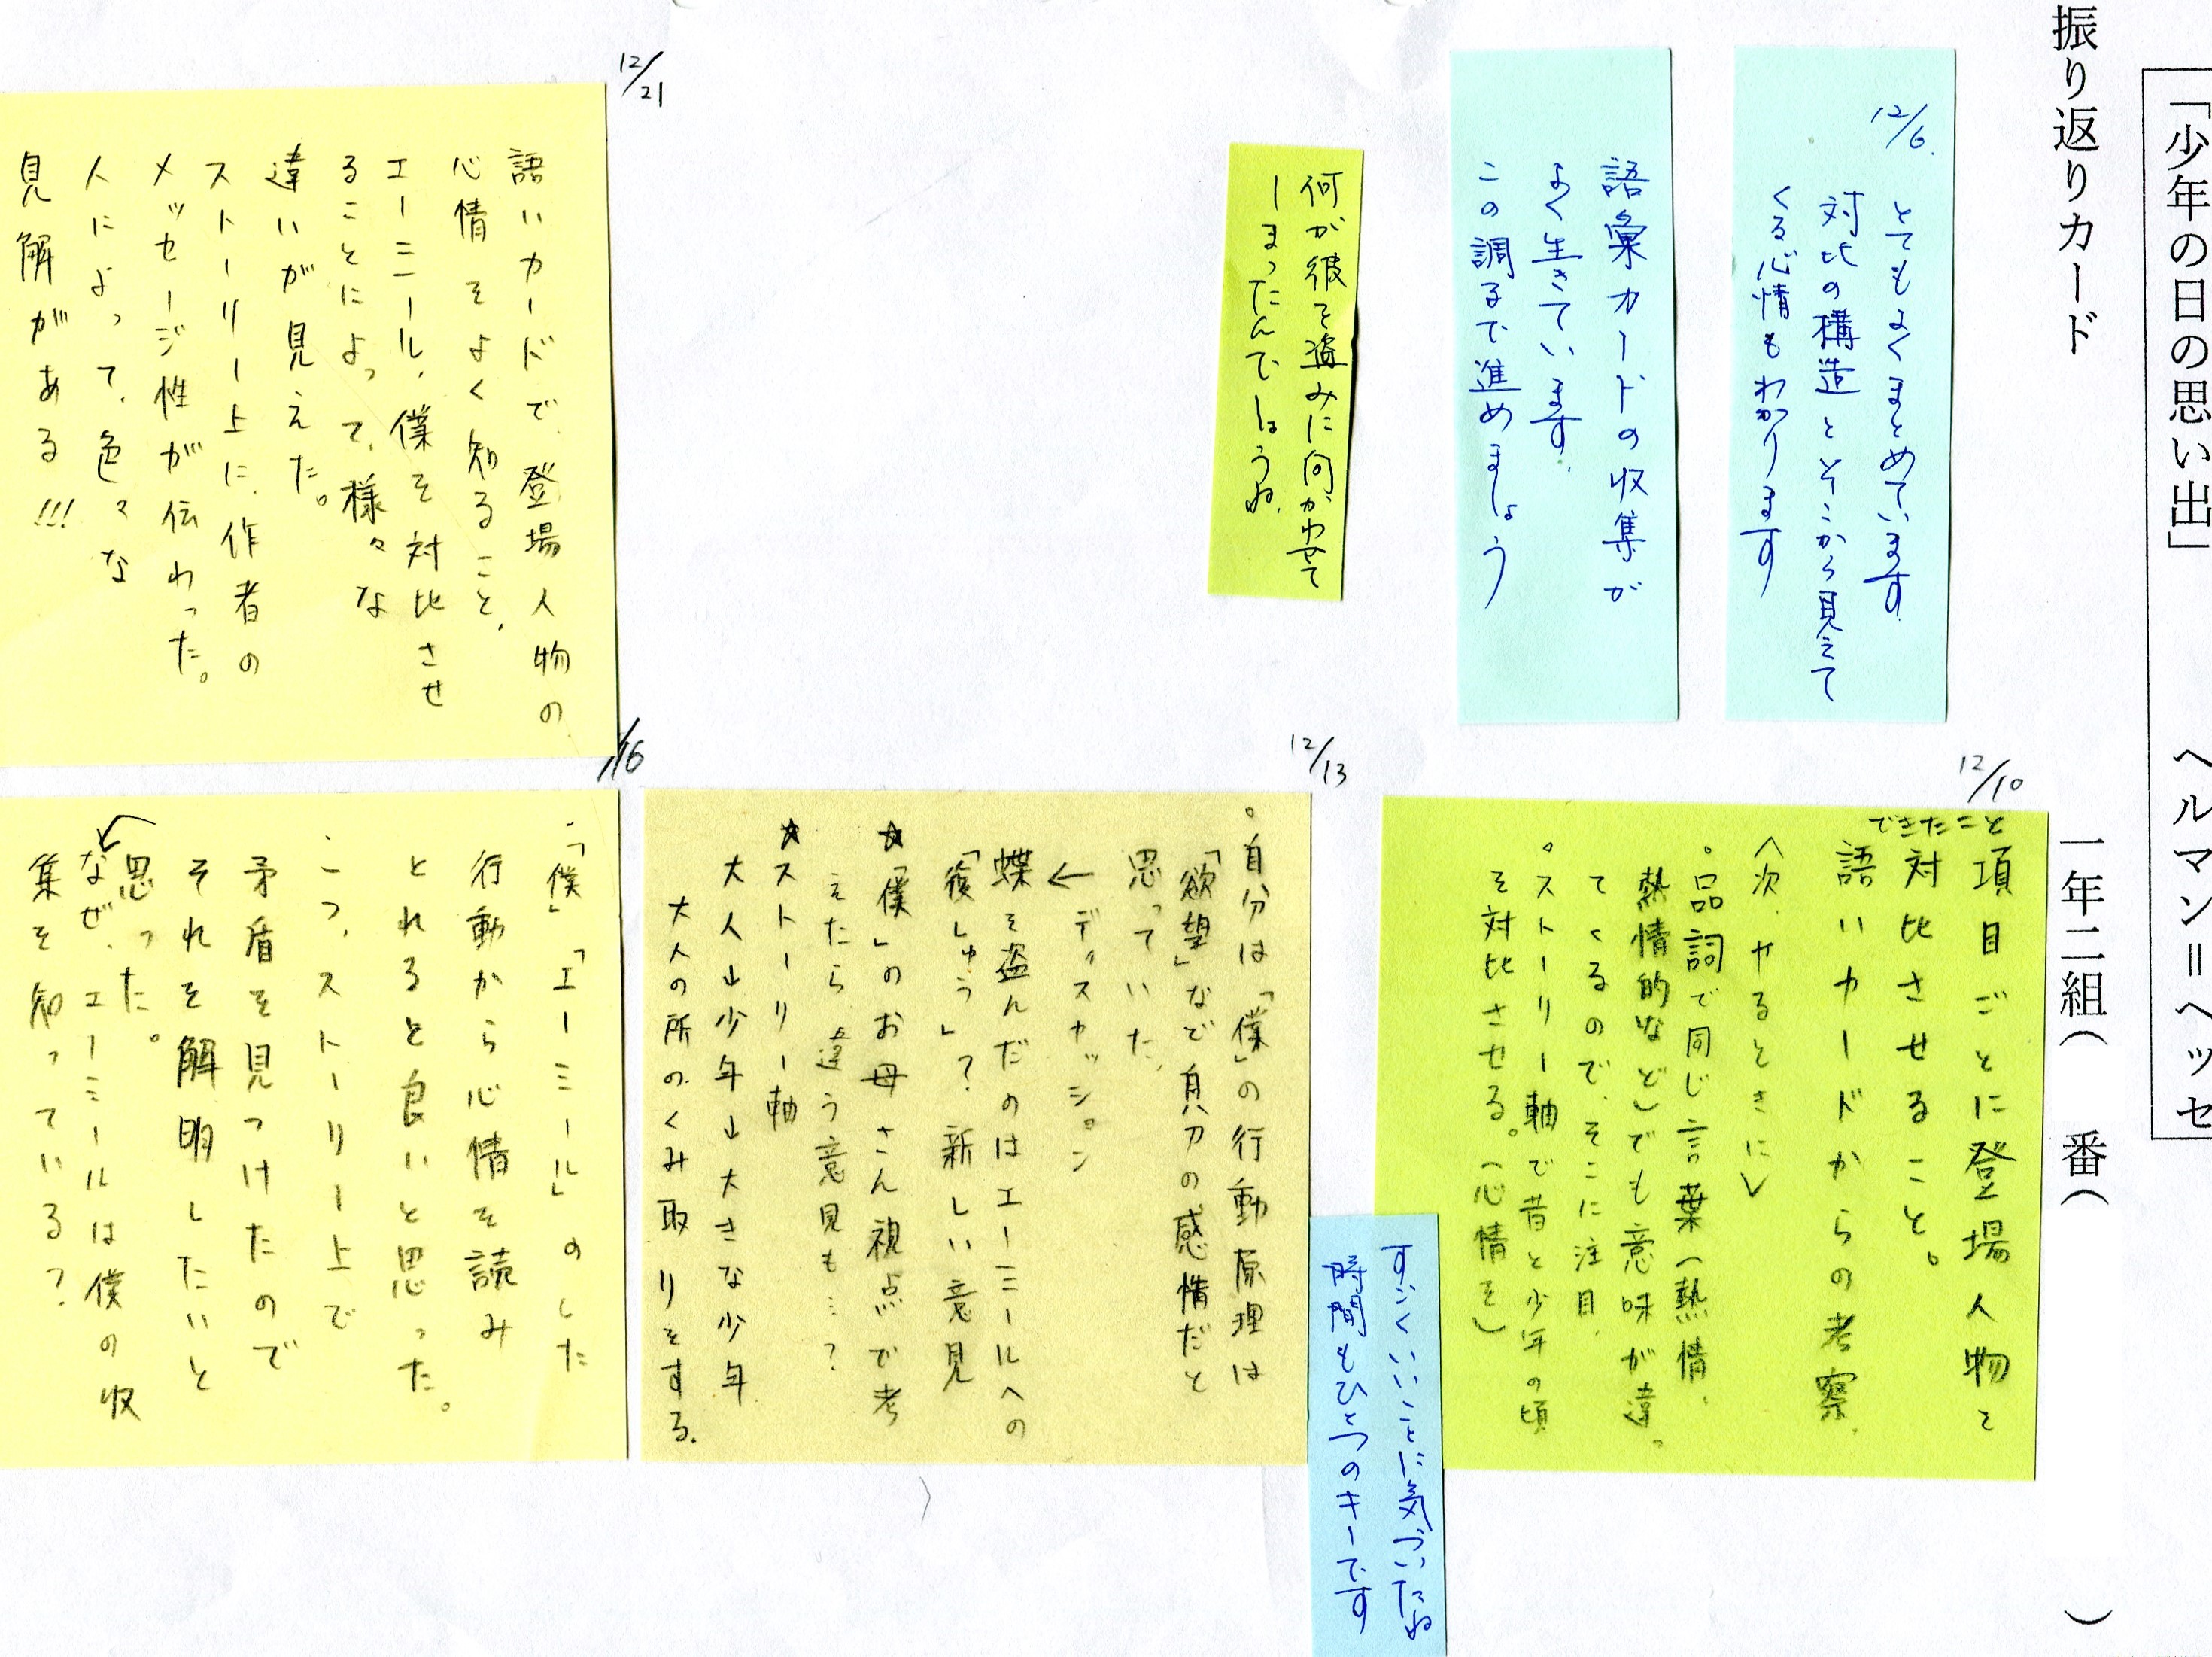 「少年の日の思い出」　ヘルマン＝ヘッセ
振り返りカード
一年二組（　番（　）
12/6.
とてもよくまとめています
対比の構造とそこから見えて
くる心情もわかります
語彙カードの収集が
よく生きています.
この調子で進めましょう
何が彼を盗みに向かわせて
しまったんでしょうね.
12/10
できたこと
項目ごとに登場人物を
対比させること。
語いカードからの考察.
〈次、やるときに〉
・品詞で同じ言葉（熱情、
熱情的など）でも意味が違っ
てくるので、そこに注目.
・ストーリー軸で昔と少年の頃
を対比させる。（心情を）
すごくいいことに気づいたね
時間もひとつのキーです
12/13
・自分は「僕」の行動原理は
「欲望」などで負の感情だと
思っていた.
← ディスカッション
蝶を盗んだのはエーミールへの
「復しゅう」？新しい意見
★「僕」のお母さん視点で考
えたら、違う意見も…？
★ストーリー軸
大人→少年→大きな少年
大人の所のくみ取りをする.
12/21
語いカードで、登場人物の
心情をよく知ること、
エーミール、僕を対比させ
ることによって、様々な
違いが見えた。
ストーリー上に、作者の
メッセージ性が伝わった。
人によって、色々な
見解がある!!!
/16
・「僕」「エーミール」のした
行動から心情を読み
とれると良いと思った。
・つ、ストーリー上で
矛盾を見つけたので
それを解明したいと
思った。
なぜ、エーミールは僕の収
集を知っている？